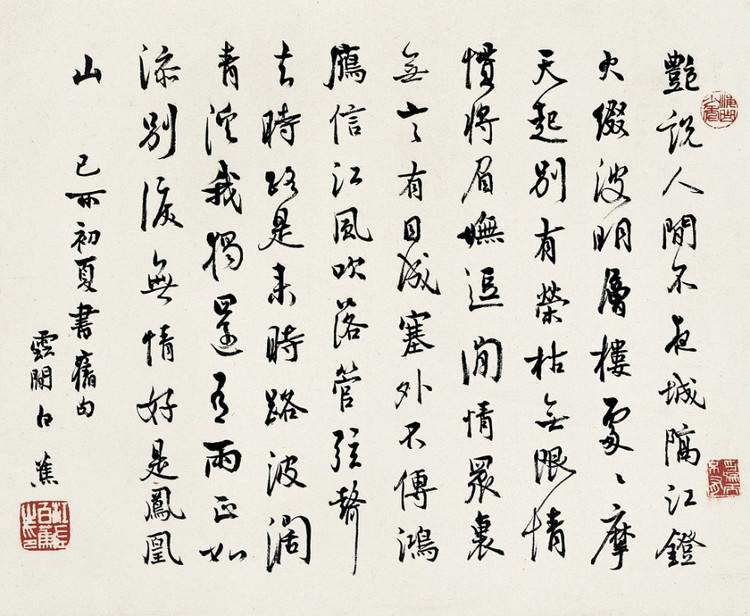 豔說人間不夜城隔江鐙
火綴波明層樓處〻摩
天起別有榮枯無限情
慣將眉嫵逗閒情眾裏
無言有目成塞外不傳鴻
鴈信江風吹落管弦聲
去時路是來時路波濶
青溪我獨還雨正如
添別淚無情好是鳳凰
山
己亥初夏書舊句
雲間白蕉